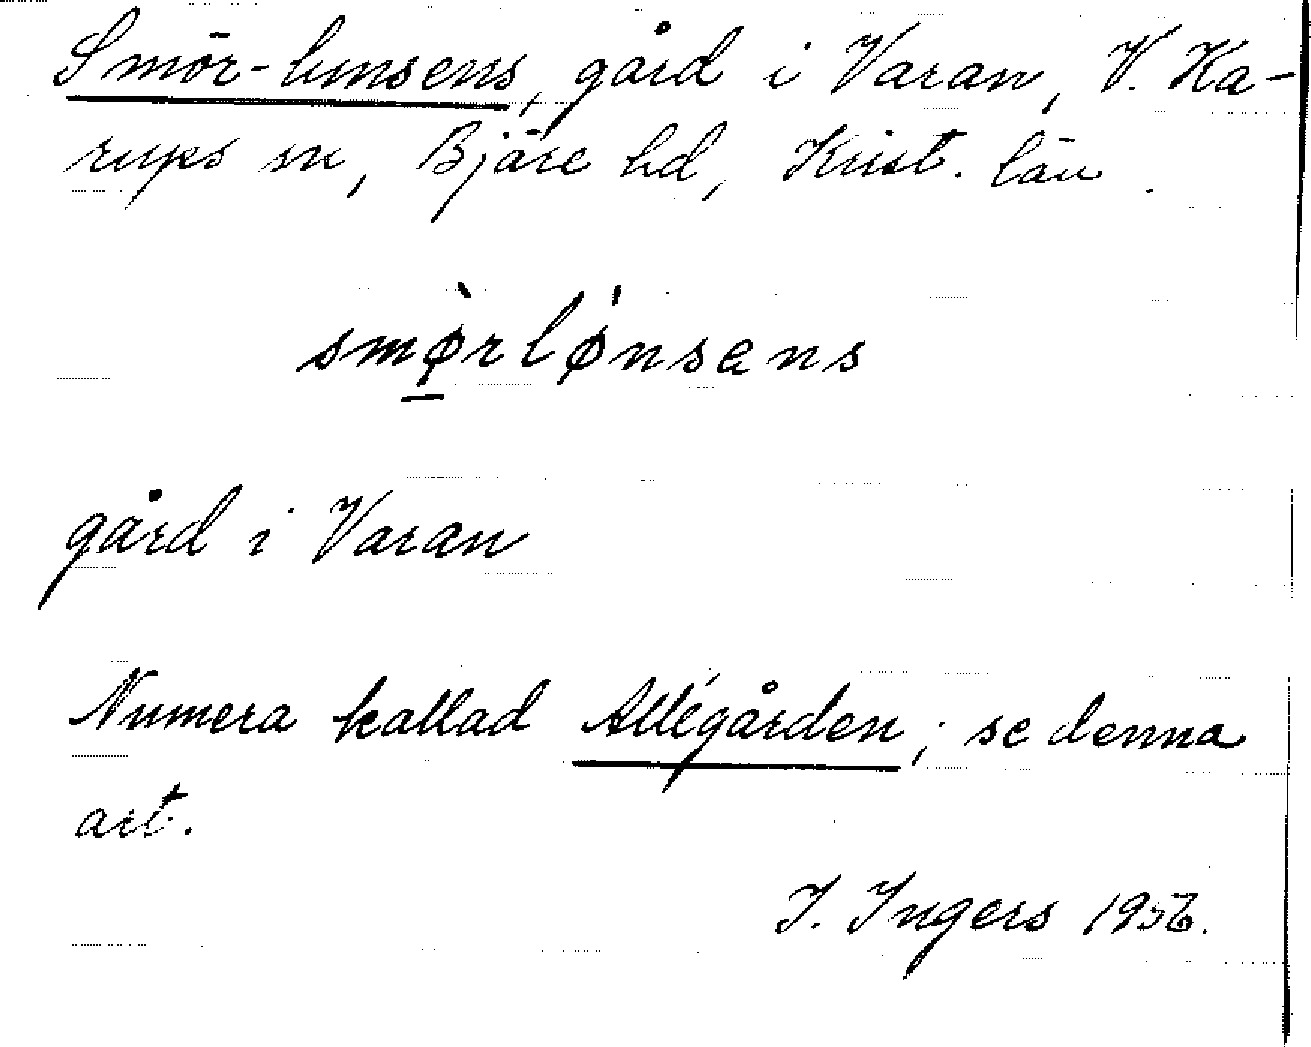 Smör-lunsens, gård i Varan, V. Ka-
rups sn, Bjäre hd, Krist. län.
smø̀rlǿnsens
gård i Varan
Numera kallad Allégården; se denna
art.
I. Ingers 1956.